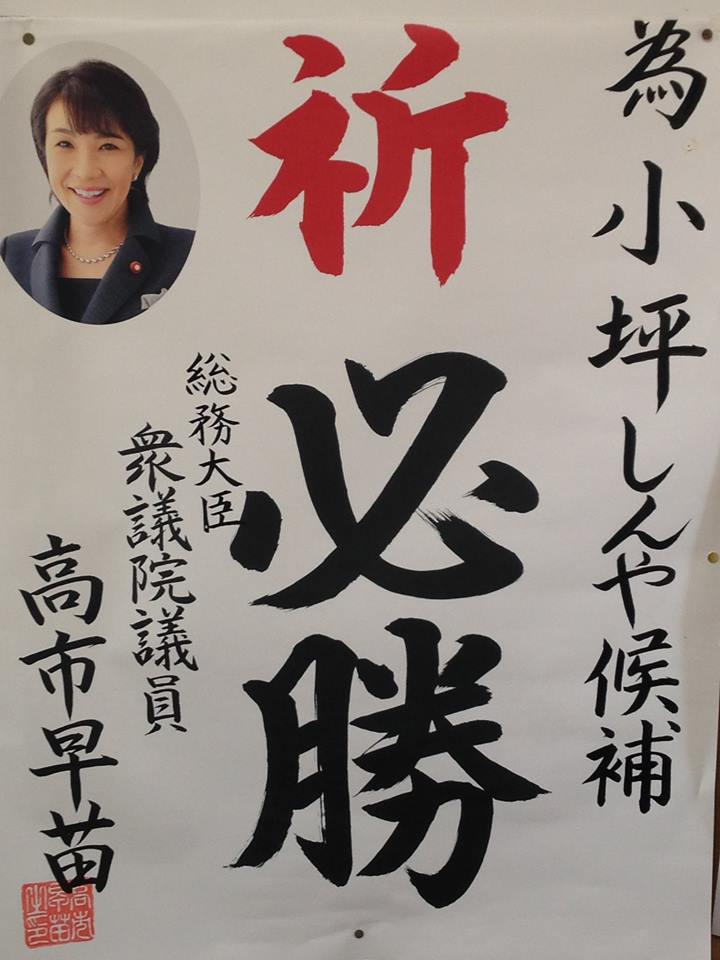 為小坪しんや候補
祈必勝
総務大臣
衆議院議員
高市早苗